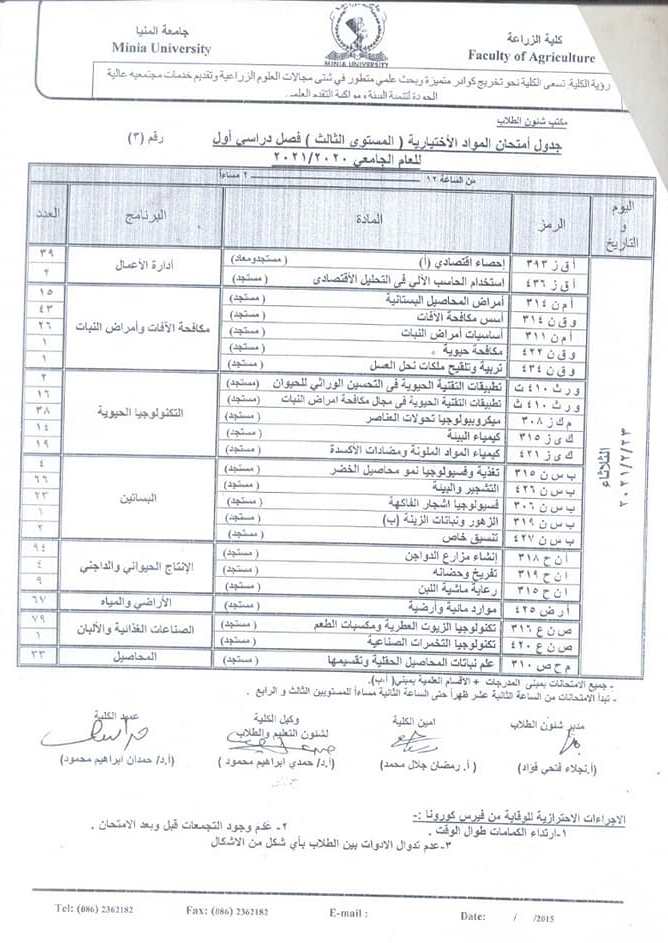 جامعة المنيا
Minia University
MINIA UNIVERSITY
كلية الزراعة
Faculty of Agriculture
رؤية الكلية: تسعى الكلية نحو تخريج كوادر متميزة وبحث علمي متطور في شتى مجالات العلوم الزراعية وتقديم خدمات مجتمعيه عالية
الجودة لتنمية البيئة ومواكبة التقدم العلمي
مكتب شئون الطلاب
جدول أمتحان المواد الأختيارية ( المستوى الثالث ) فصل دراسي أول رقم (٣)
للعام الجامعي ٢٠٢١/٢٠٢٠
من الساعة ١٢ ــــ ٢ مساءا
اليوم و التاريخ الرمز المادة البرنامج العدد
الثلاثاء ٢٠٢١/٢/٢٣
أ ق ز ٣٩٣ إحصاء اقتصادي (أ) (مستجدومعاد) أدارة الأعمال ٣٩
أ ق ز ٤٣٦ إستخدام الحاسب الألي فى التحليل الاقتصادى (مستجد) ٢
أ م ن ٣١٤ أمراض المحاصيل البستانية (مستجد) مكافحة الآفات وأمراض النبات ١٥
و ق ن ٣١٤ أسس مكافحة الأفات (مستجد) ٤٣
أ م ن ٣١١ أساسيات أمراض النبات (مستجد) ٢٦
و ق ن ٤٢٢ مكافحة حيوية (مستجد) ١
و ق ن ٤٣٤ تربية وتلقيح ملكات نحل العسل (مستجد) ١
و ر ث ٤١٠ ت تطبيقات التقنية الحيوية فى التحسين الوراثي للحيوان (مستجد) التكنولوجيا الحيوية ٢
و ر ث ٤١٠ ث تطبيقات التقنية الحيوية فى مجال مكافحة امراض النبات (مستجد) ١٦
م ك ز ٣٠٨ ميكروبيولوجيا تحولات العناصر (مستجد) ٣٨
ك ى ز ٣١٥ كيمياء البيئة (مستجد) ١٤
ك ى ز ٤٢١ كيمياء المواد الملونة ومضادات الأكسدة (مستجد) ١٩
ب س ن ٣١٥ تغذية وفسيولوجيا نمو محاصيل الخضر (مستجد) البساتين ٤
ب س ن ٤٢٦ التشجير والبيئة (مستجد) ٦٦
ب س ن ٣٠٦ فسيولوجيا اشجار الفاكهة (مستجد) ٢٣
ب س ن ٣١٩ الزهور ونباتات الزينة (ب) (مستجد) ١
ب س ن ٤٢٧ تنسيق خاص (مستجد) ٢
أ ن ح ٣١٨ إنشاء مزارع الدواجن (مستجد) الإنتاج الحيواني والداجني ٩٤
أ ن ح ٣١٩ تفريخ وحضانه (مستجد) ٤
أ ن ح ٣١٥ رعاية ماشية اللبن (مستجد) ٩
أ ر ض ٤٢٥ موارد مائية وأرضية (مستجد) الأراضي والمياه ٦٧
ص ن ع ٣١٦ تكنولوجيا الزيوت العطرية ومكسبات الطعم (مستجد) الصناعات الغذائية والألبان ٧٩
ص ن ع ٤٢٠ تكنولوجيا التخمرات الصناعية (مستجد) ١
م ح ص ٣١٠ علم نباتات المحاصيل الحقلية وتقسيمها (مستجد) المحاصيل ٣٣
- جميع الامتحانات بمبنى المدرجات + الأقسام العلمية بمبنى( أ،ب).
- تبدأ الامتحانات من الساعة الثانية عشر ظهراً حتى الساعة الثانية مساءاً للمستويين الثالث و الرابع .
مدير شئون الطلاب امين الكلية وكيل الكلية عميد الكلية
لشئون التعليم والطلاب
(أ.نجلاء فتحي فؤاد) (أ. رمضان جلال محمد) (أ.د/ حمدي ابراهيم محمود) (أ.د/ حمدان ابراهيم محمود)
الاجراءات الاحترازية للوقاية من فيرس كورونا :-
١- ارتداء الكمامات طوال الوقت . ٢- عدم وجود التجمعات قبل وبعد الامتحان .
٣- عدم تدوال الادوات بين الطلاب بأي شكل من الاشكال
Tel: (086) 2362182 Fax: (086) 2362182 E-mail : Date: / /2015